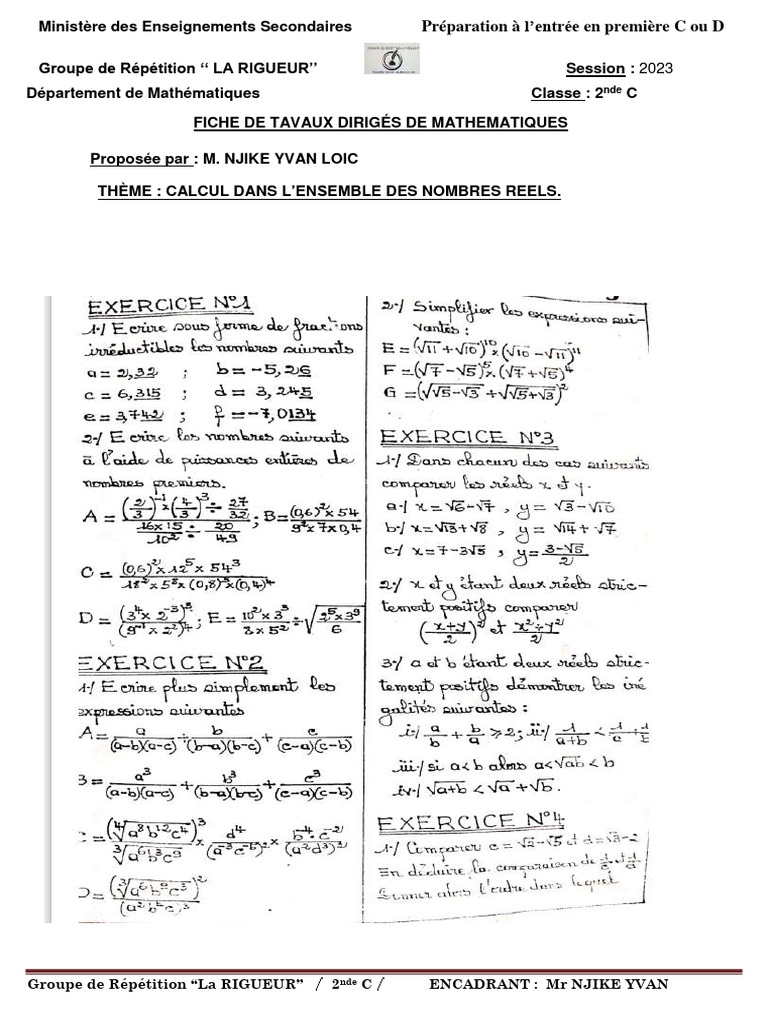 Ministère des Enseignements Secondaires Préparation à l’entrée en première C ou D
Groupe de Répétition “ LA RIGUEUR” Session : 2023
Département de Mathématiques Classe : 2nde C
FICHE DE TAVAUX DIRIGÉS DE MATHEMATIQUES
Proposée par : M. NJIKE YVAN LOIC
THÈME : CALCUL DANS L’ENSEMBLE DES NOMBRES REELS.
EXERCICE N°1
1-/ Ecrire sous forme de fractions
irréductibles les nombres suivants
a = 2,32 ; b = -5,26
c = 6,315 ; d = 3,245
e = 3,742 ; f = -7,0134
2-/ Ecrire les nombres suivants
à l'aide de puissances entières de
nombres premiers.
A = ((2/3)^-1 × (4/3)^3 ÷ 27/32) / (16×15/10² ÷ 20/49) ; B = ((0,6)² × 54) / (9² × 7 × 0,4)
C = ((0,6)² × 12⁵ × 54³) / (18² × 5² × (0,8)³ × (0,4)⁴)
D = (3⁴ × 2⁻³)⁵ / (9⁻¹ × 2²)⁴ ; E = (10² × 3³) / (3 × 5²) ÷ √((2⁵ × 3⁹) / 6)
EXERCICE N°2
1-/ Ecrire plus simplement les
expressions suivantes
A = a/((a-b)(a-c)) + b/((b-a)(b-c)) + c/((c-a)(c-b))
B = a³/((a-b)(a-c)) + b³/((b-a)(b-c)) + c³/((c-a)(c-b))
C = (⁴√(a⁸b¹²c⁴))³ / ³√(a⁶b³c⁹) × d⁴/(a⁻³c⁻⁵)² × (b⁻⁴ · c⁻²)/(a²d³)²
D = (³√(a⁶b⁹c³))² / (a²b²c)³
2-/ Simplifier les expressions sui-
vantes :
E = (√11 + √10)¹⁰ × (√10 - √11)¹¹
F = (√7 - √5)⁵ × (√7 + √5)⁴
G = (√(√5-√3) + √(√5+√3))²
EXERCICE N°3
1-/ Dans chacun des cas suivants
comparer les réels x et y.
a-/ x = √6 - √7 , y = √3 - √10
b-/ x = √13 + √8 , y = √14 + √7
c-/ x = 7 - 3√5 , y = (3 - √5)/2
2-/ x et y étant deux réels stric-
tement positifs comparer
((x+y)/2)² et (x²+y²)/2
3-/ a et b étant deux réels stric-
tement positifs démontrer les iné
galités suivantes :
i-/ a/b + b/a ⩾ 2 ; ii-/ 1/(a+b) < 1/a + 1/b
iii-/ si a < b alors a < √ab < b
iv-/ √(a+b) < √a + √b.
EXERCICE N°4
1-/ Comparer c = √2 - √5 et d = √3 - 2
En déduire la comparaison de 1/c et 1/d
Donner alors l'ordre dans lequel
Groupe de Répétition “La RIGUEUR” / 2nde C / ENCADRANT : Mr NJIKE YVAN